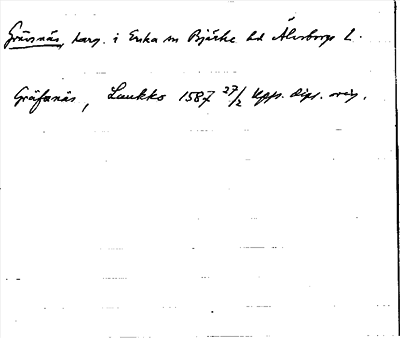 Gräfsnäs, herg. i Erska sn Bjärke hd Älvsborgs l.
Gräfsnäs, Laukko 1587 27/2 Upps. dipl. orig.